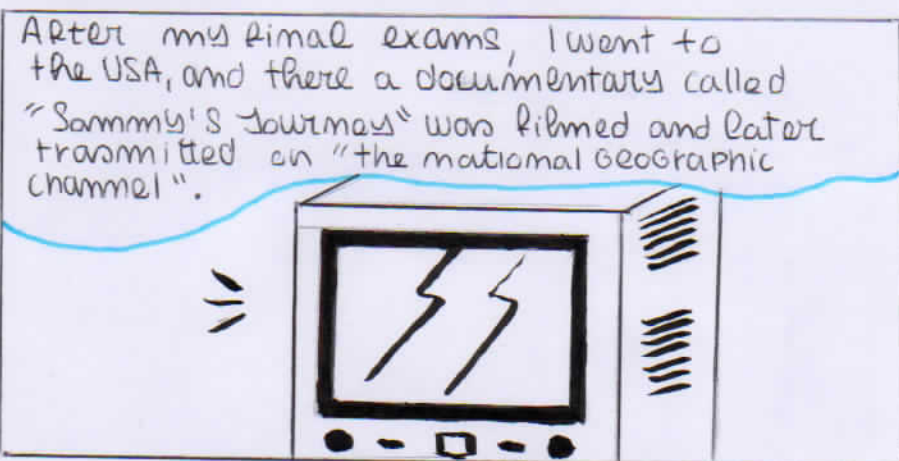 After my final exams, I went to
the USA, and there a documentary called
"Sammy's Journey" was filmed and later
trasmitted on "the national Geographic
channel".